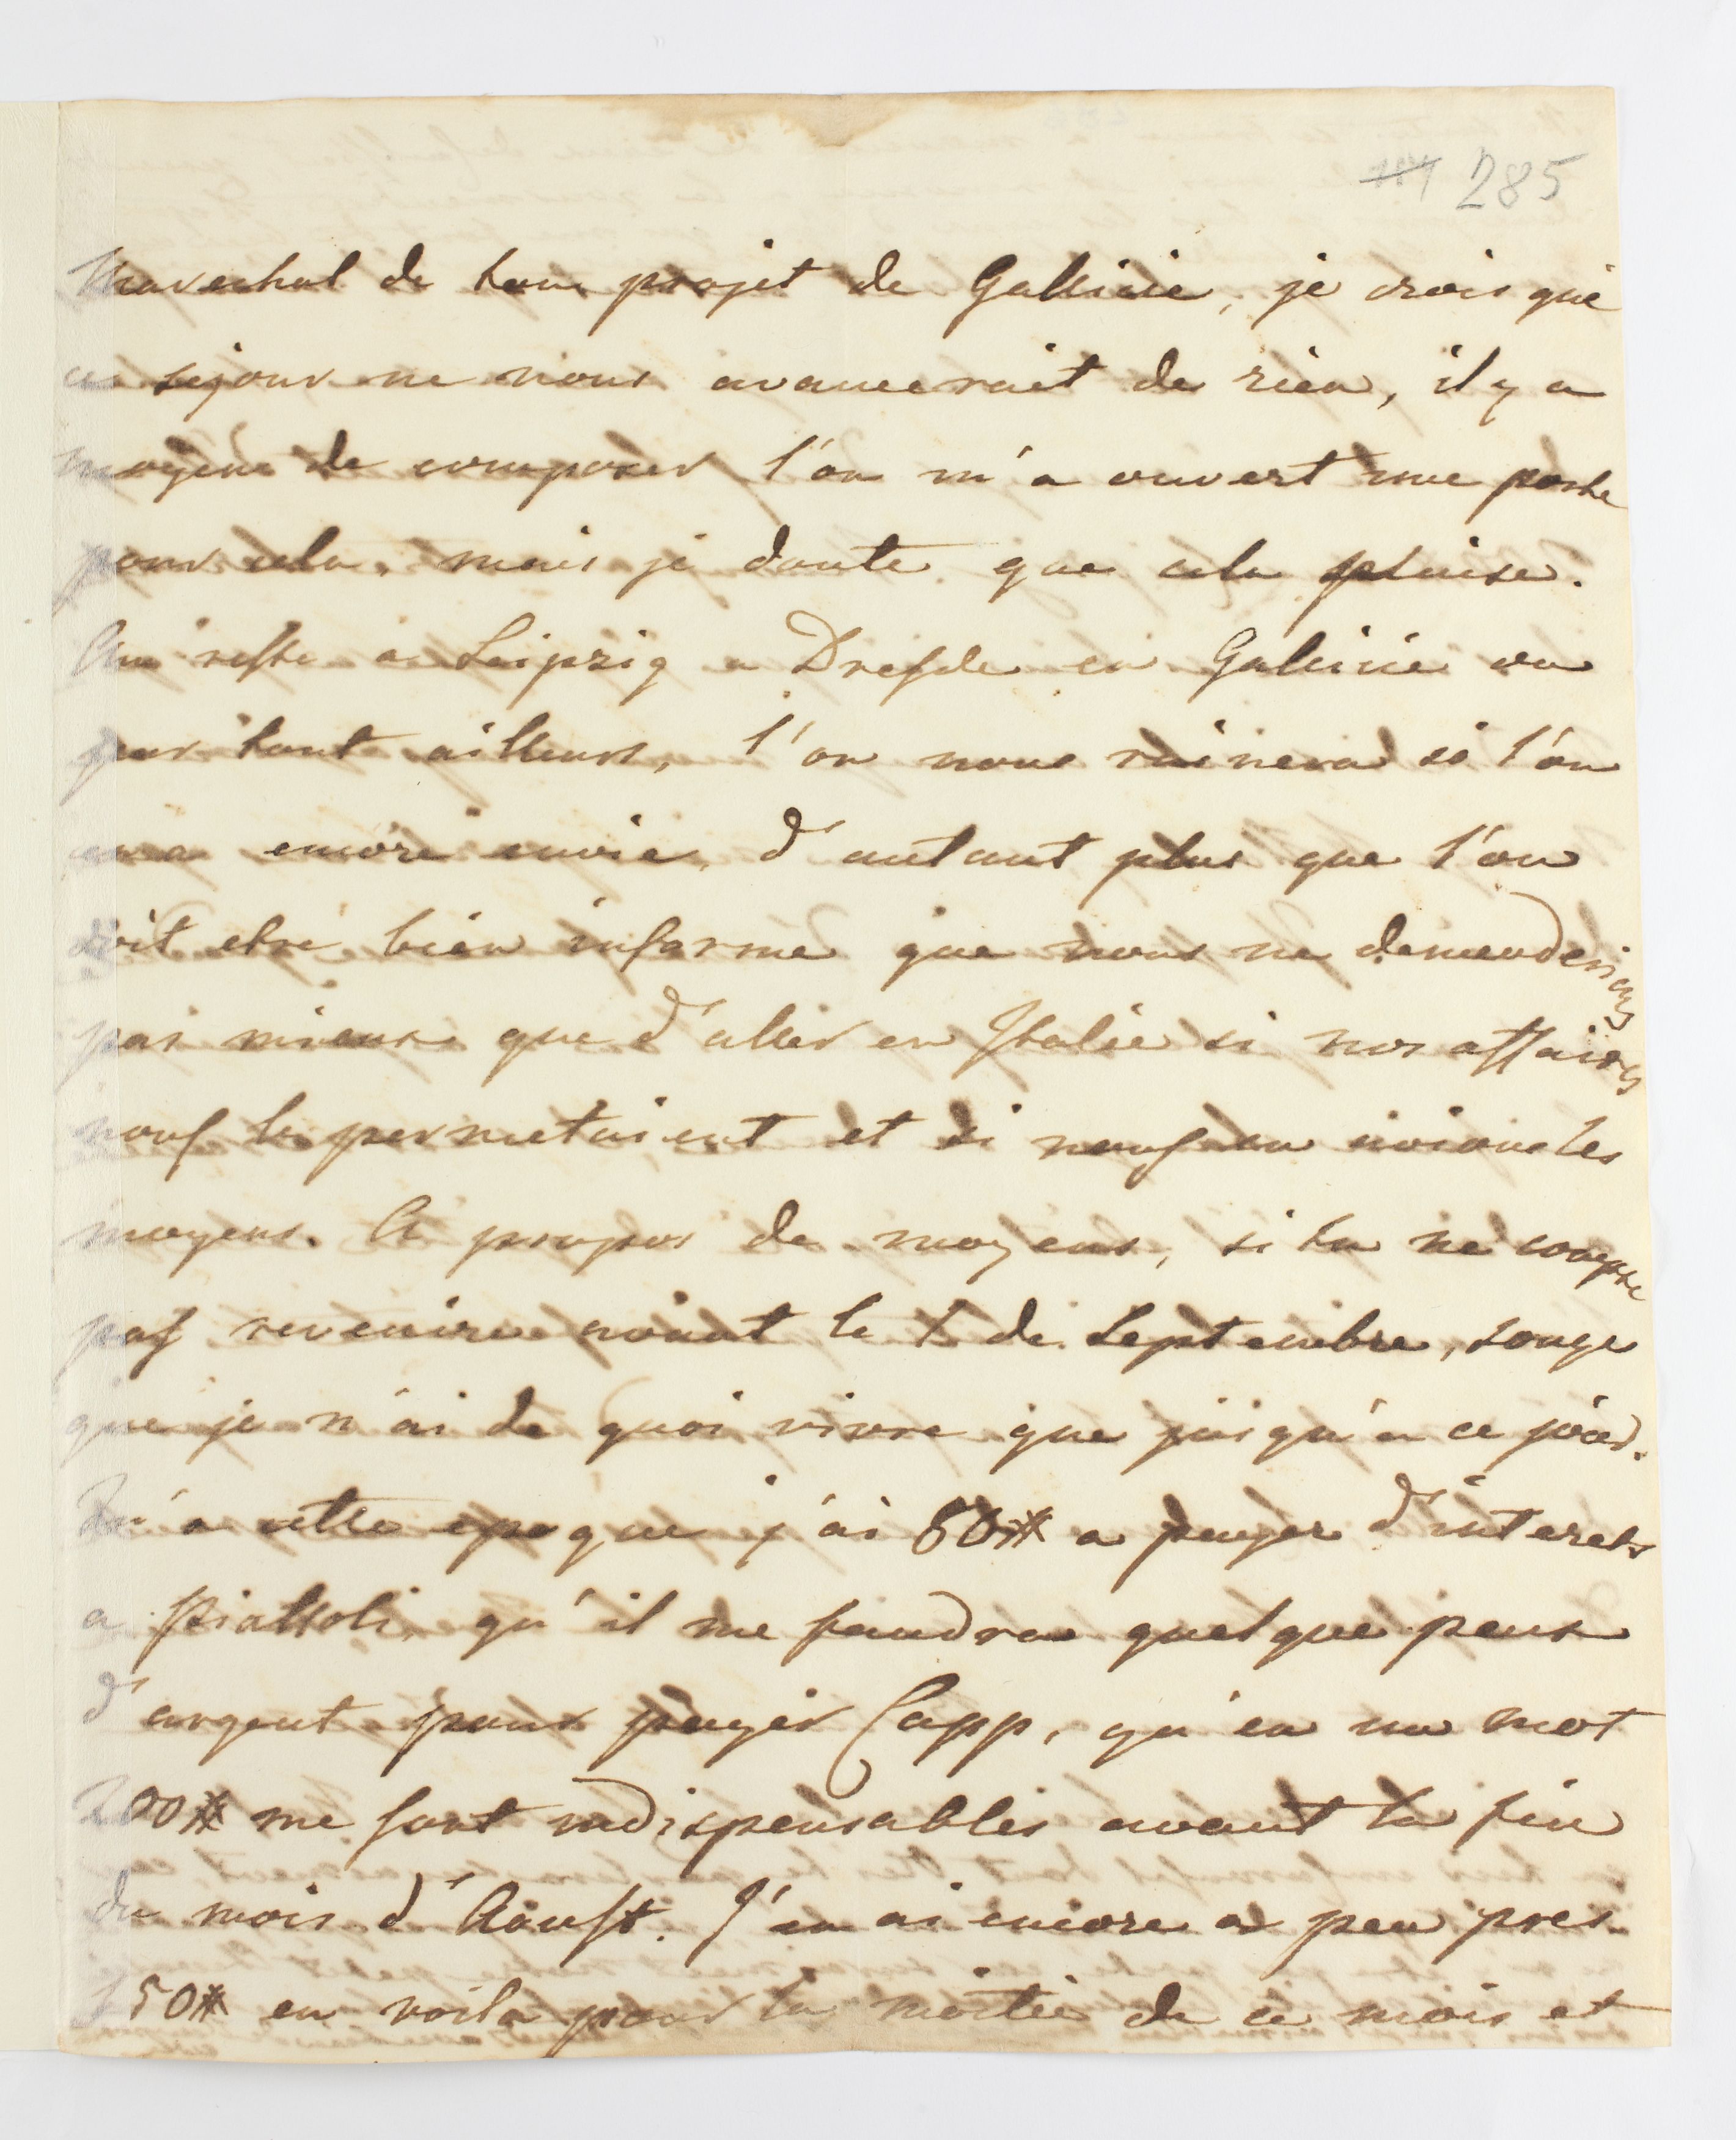 285
Marechal de ton projet de Gallicie, je crois que
ce sejour ne nous avancerait de rien, il y a
moyens de composer l'on m'a ouvert une porte
pour cela, mais je doute que cela plaise.
Au reste a Leipzig a Dresde en Gallicie ou
par tout ailleurs, l'on nous ruinera si l'on
en a encore envie, d'autant plus que l'on
doit etre bien informé que nous ne demanderions
pas mieux que d'aller en Italie si nos affaires
nous le permetaient et si nous en avions les
moyens. A propos de moyens, si tu ne compte
pas revenire avant le 1 de Septembre, songe
que je n'ai de quoi vivre que jusqu'a ce jour.
Qu'a cette epoque j'ai 50# a payer d'interets
a Piattoli, qu'il me faudra quelque peux
d'argent pour payer Capp, qu'en un mot
200# me sont indispensables avant la fin
du mois d'Aoust. J'en ai encore a peu pres
150# en voila pour la moitié de ce mois et